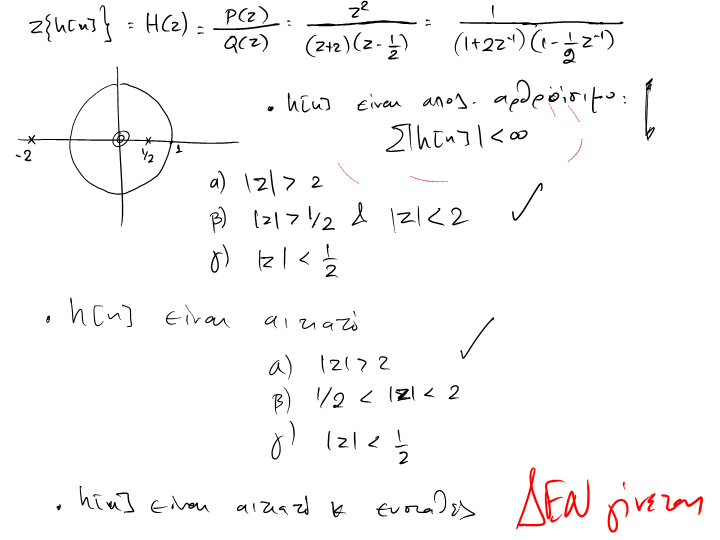 Z{h[n]} = H(z) = P(z)/Q(z) = z²/((z+2)(z-1/2)) = 1/((1+2z⁻¹)(1-1/2 z⁻¹))
-2 1/2 1
• h[n] είναι απολ. αρθροίσιμο:
Σ|h[n]| < ∞
α) |z| > 2
β) |z| > 1/2 & |z| < 2 ✓
γ) |z| < 1/2
• h[n] είναι αιτιατό
α) |z| > 2 ✓
β) 1/2 < |z| < 2
γ) |z| < 1/2
• h[n] είναι αιτιατό κ ευσταθές ΔΕΝ γίνεται